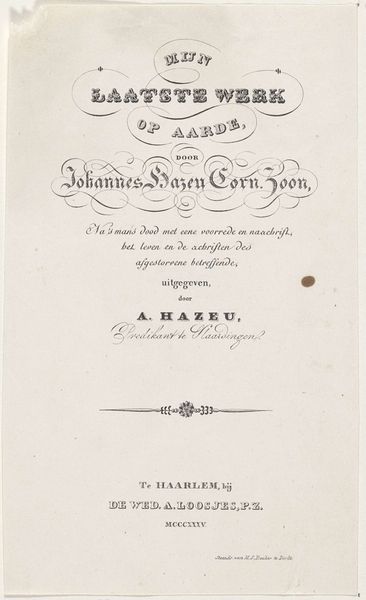 MIJN
LAATSTE WERK
OP AARDE,
DOOR
Johannes Hazeu Corn. Zoon,
Na 's mans dood met eene voorrede en naschrift,
het leven en de schriften des
afgestorvene betreffende,
uitgegeven,
door
A. HAZEU,
Predikant te Vlaardingen.
Te HAARLEM, bij
DE WED. A. LOOSJES, P.Z.
MCCCXXXV.
Steendr. van